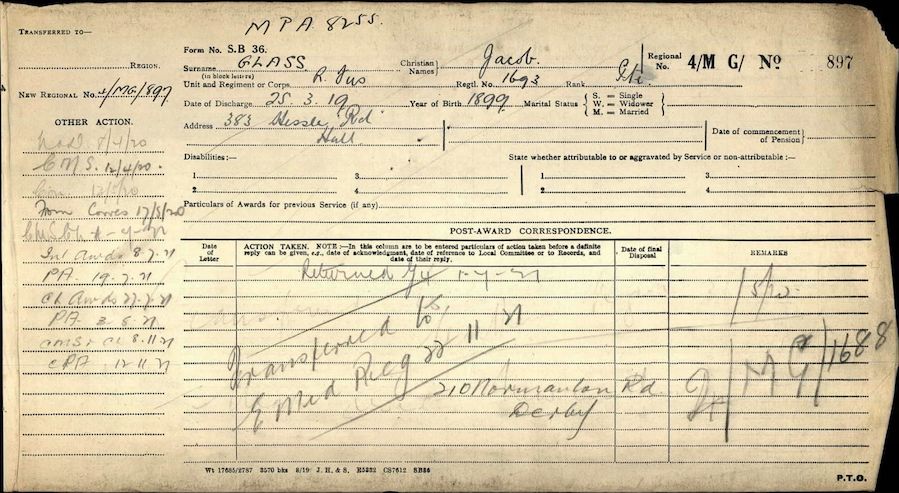 MPA 8255.
TRANSFERRED TO—
REGION.
NEW REGIONAL No. 4/MG/897
OTHER ACTION.
8/4/20
CMS. 12/4/20.
From Corres 17/5/20
Awds 8.7.21
PA 19.7.21
Awds 27.7.21
PA 3.8.21
8.11.21
12.11.21
Form No. S.B 36.
Surname GLASS
(in block letters)
Christian Names Jacob.
Regional No. 4/M G/ No 897
Unit and Regiment or Corps R. Fus Regtl. No. 1693 Rank Pte.
Date of Discharge 25.3.19 Year of Birth 1899 Marital Status { S. = Single W. = Widower M. = Married
Address 383 Hessle Rd
Hull
Date of commencement of Pension
Disabilities:—
State whether attributable to or aggravated by Service or non-attributable:—
1 3 1 3
2 4 2 4
Particulars of Awards for previous Service (if any)
POST-AWARD CORRESPONDENCE.
Date of Letter
ACTION TAKEN. NOTE:—In this column are to be entered particulars of action taken before a definite reply can be given, e.g., date of acknowledgment, date of reference to Local Committee or to Records, and date of their reply.
Date of final Disposal
REMARKS
Returned
Transferred to
E Mid Reg 22 11 21
210 Normanton Rd
Derby
MG/1688
Wt 17685/2787 3570 bks 8/19 J. H. & S. E5332 CS7612 SB36
P.T.O.